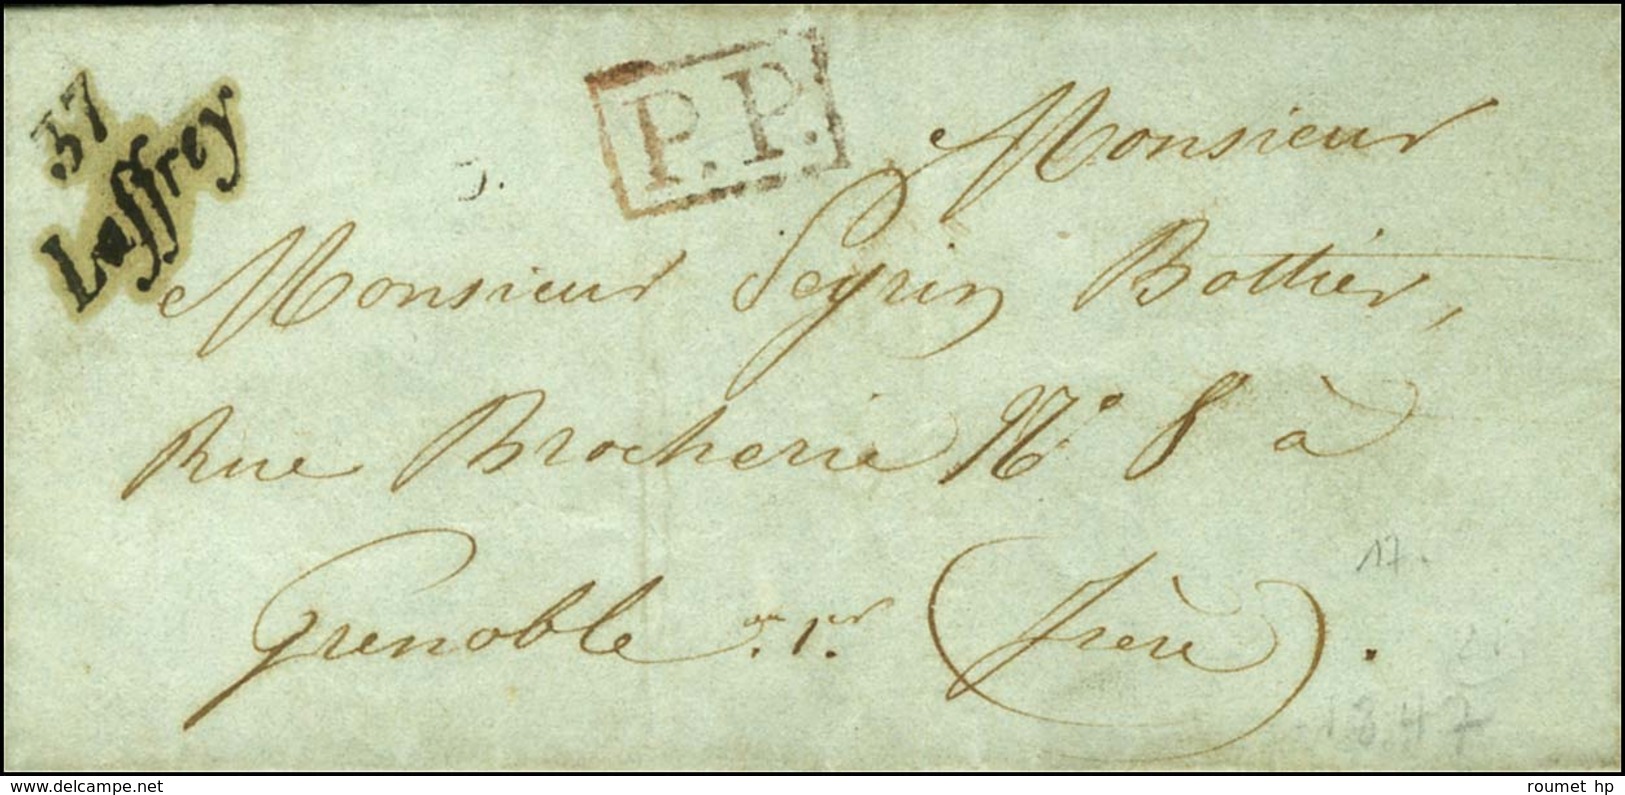 37
Laffrey
P.P.
Monsieur
Monsieur Peyrin Bottier,
Rue Brocherie N° 8 à
Grenoble au 1er (Isère).
17.
1847
www.delcampe.net
roumet hp